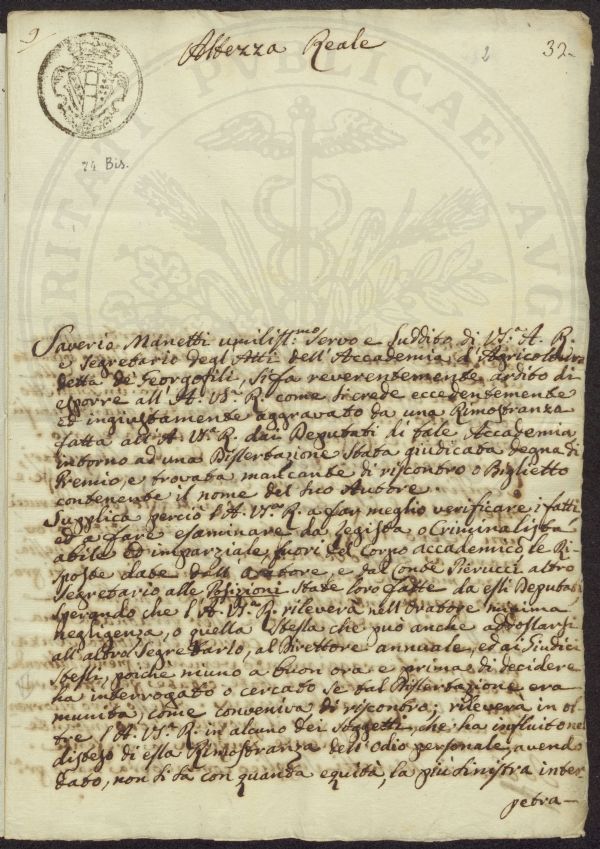 2
Altezza Reale
2
32
74 Bis.
PROSPERITATI PVBLICAE AVG
Saverio Manetti umilissmo: Servo e Suddito di Va: A. R.
e Segretario degl'Atti dell'Accademia d'Agricoltura
detta de Georgofili, si fa reverentemente ardito di
esporre all'A. Va: R. come si crede eccedentemente
ed ingiustamente agravato da una Rimostranza
fatta all'A. Va: R. dai Deputati di tale Accademia
intorno ad una Dissertazione stata giudicata degna di
Premio, e trovata mancante di riscontro o Biglietto
contenente il nome del suo Autore.
Supplica perciò l'A. Va: R. a far meglio verificare i fatti
ed a fare esaminare da Legista o Criminalista
abile ed imparziale, fuori del Corpo accademico le Ri-
sposte date dall'Oratore, e dal Conte Pierucci altro
Segretario alle Posizioni state loro fatte da essi Deputati
sperando che l'A. Va: R. rileverà nell'Oratore niuna
negligenza, o quella stessa che può anche adossarsi
all'altro Segretario, al Direttore annuale, ed ai Giudici
stessi, poichè niuno a buon ora e prima di decidere
ha interrogato o cercato se tal Dissertazione era
munita, come conveniva di riscontro; rileverà in ol-
tre l'A. Va: R. in alcuno dei Soggetti, che ha influito nel
disteso di essa Rimostranza dell'odio personale, avendo
dato, non si sa con quanta equità, la più sinistra inter
petra-